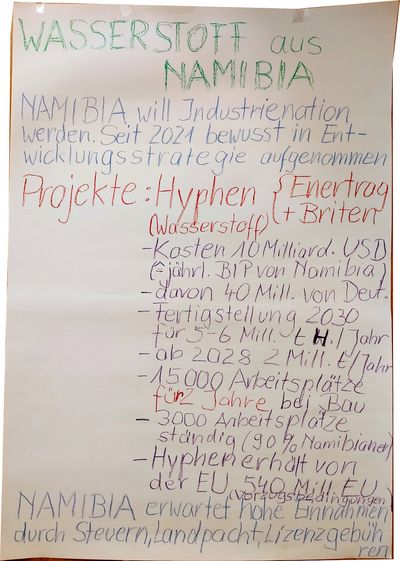 WASSERSTOFF aus
NAMIBIA
NAMIBIA will Industrienation
werden. Seit 2021 bewusst in Ent-
wicklungsstrategie aufgenommen
Projekte: Hyphen { Enertrag
(Wasserstoff) + Briten
- Kosten 10 Milliard. USD
(≙ jährl. BIP von Namibia)
- davon 40 Mill. von Deut.
- Fertigstellung 2030
für 5-6 Mill. t H./Jahr
- ab 2028 2 Mill. t/Jahr
- 15000 Arbeitsplätze
für 2 Jahre bei Bau
- 3000 Arbeitsplätze
ständig (90% Namibianer)
- Hyphen erhält von
der EU 540 Mill. EU
(Vorzugsbedingungen)
NAMIBIA erwartet hohe Einnahmen
durch Steuern, Landpacht, Lizenzgebüh
ren